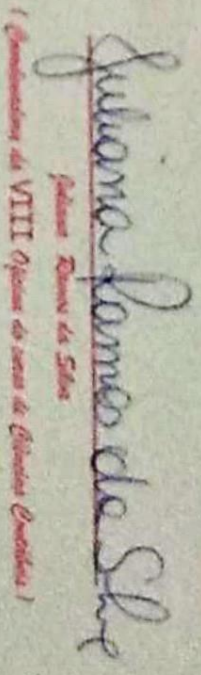 Juliana Ramos da Silva
Juliana Ramos da Silva
( Coordenadora da VIII do curso de Ciências Contábeis )